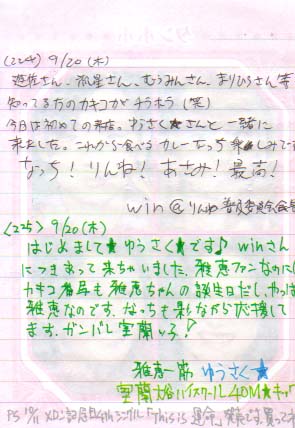 (224) 9/20 (木)
遊佐さん、流星さん、むうみんさん、まりひろさん等
知ってる方のカキコがチラホラ (笑)
今日は初めての来店。ゆうさく★さんと一緒に
来ました。これから食べるカレーなっち楽しみで
なっち! りんね! あさみ! 最高!
win@りんね
(225) 9/20 (木)
はじめまして★ゆうさく★です♪ winさん
につきあって来ちゃいました。雅恵ファンなのに
カキコ番号も雅恵ちゃんの誕生日だし、やっぱ
雅恵なのです。なっちも影ながら応援して
ます。ガンバレ室蘭っ子!
雅恵一筋 ゆうさく★
室蘭 ハイスクール 40M★キッ
PS 10/11 メロン記念日4thシングル「This is 運命」 です。買って